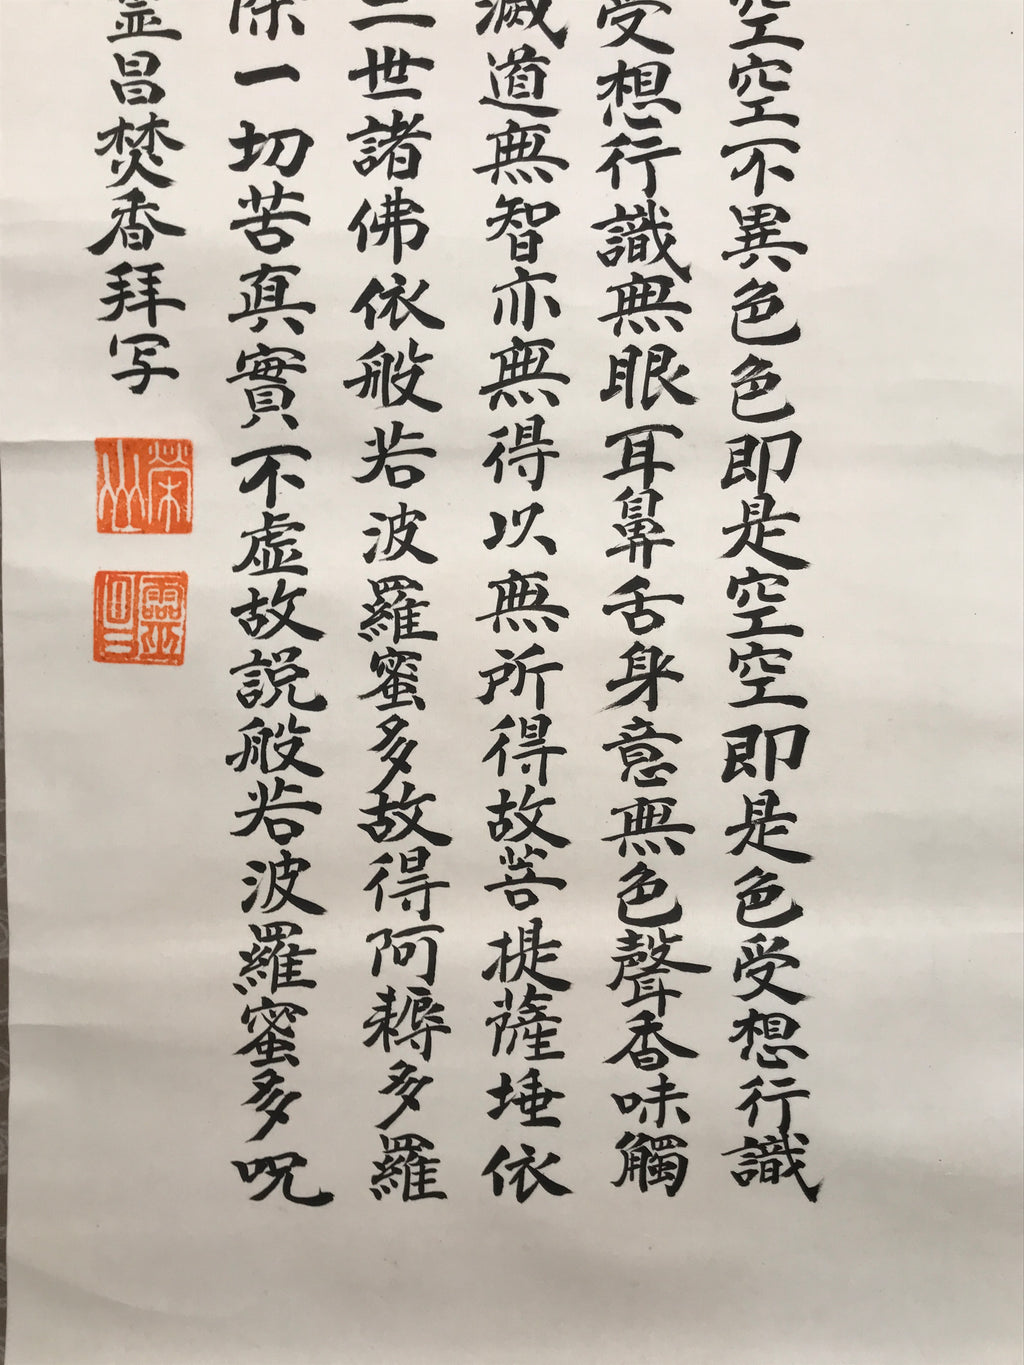 空空不異色色即是空空即是色受想行識
受想行識無眼耳鼻舌身意無色聲香味觸
滅道無智亦無得以無所得故菩提薩埵依
三世諸佛依般若波羅蜜多故得阿耨多羅
除一切苦真實不虛故説般若波羅蜜多呪
霊昌焚香拜写